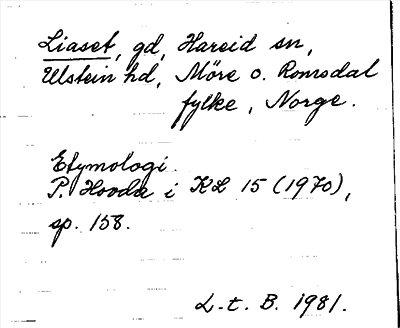 Liaset, gd, Hareid sn,
Ulstein hd, Möre o. Romsdal
fylke, Norge.
Etymologi.
P. Hovda i KL 15 (1970),
sp. 158.
L-t. B. 1981.